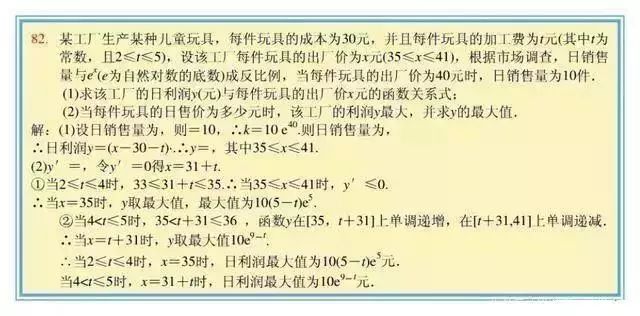 82. 某工厂生产某种儿童玩具，每件玩具的成本为30元，并且每件玩具的加工费为t元(其中t为
常数，且2≤t≤5)，设该工厂每件玩具的出厂价为x元(35≤x≤41)，根据市场调查，日销售
量与eˣ(e为自然对数的底数)成反比例，当每件玩具的出厂价为40元时，日销售量为10件．
(1)求该工厂的日利润y(元)与每件玩具的出厂价x元的函数关系式；
(2)当每件玩具的日售价为多少元时，该工厂的利润y最大，并求y的最大值．
解：(1)设日销售量为，则=10，∴k=10 e⁴⁰.则日销售量为，
∴日利润y=(x－30－t)·.∴y=，其中35≤x≤41.
(2)y′=，令y′=0得x=31+t.
①当2≤t≤4时，33≤31+t≤35.∴当35≤x≤41时，y′≤0.
∴当x=35时，y取最大值，最大值为10(5－t)e⁵.
②当4<t≤5时，35<t+31≤36，函数y在[35，t+31]上单调递增，在[t+31,41]上单调递减．
∴当x=t+31时，y取最大值10e⁹⁻ᵗ.
∴当2≤t≤4时，x=35时，日利润最大值为10(5－t)e⁵元．
当4<t≤5时，x=31+t时，日利润最大值为10e⁹⁻ᵗ元．